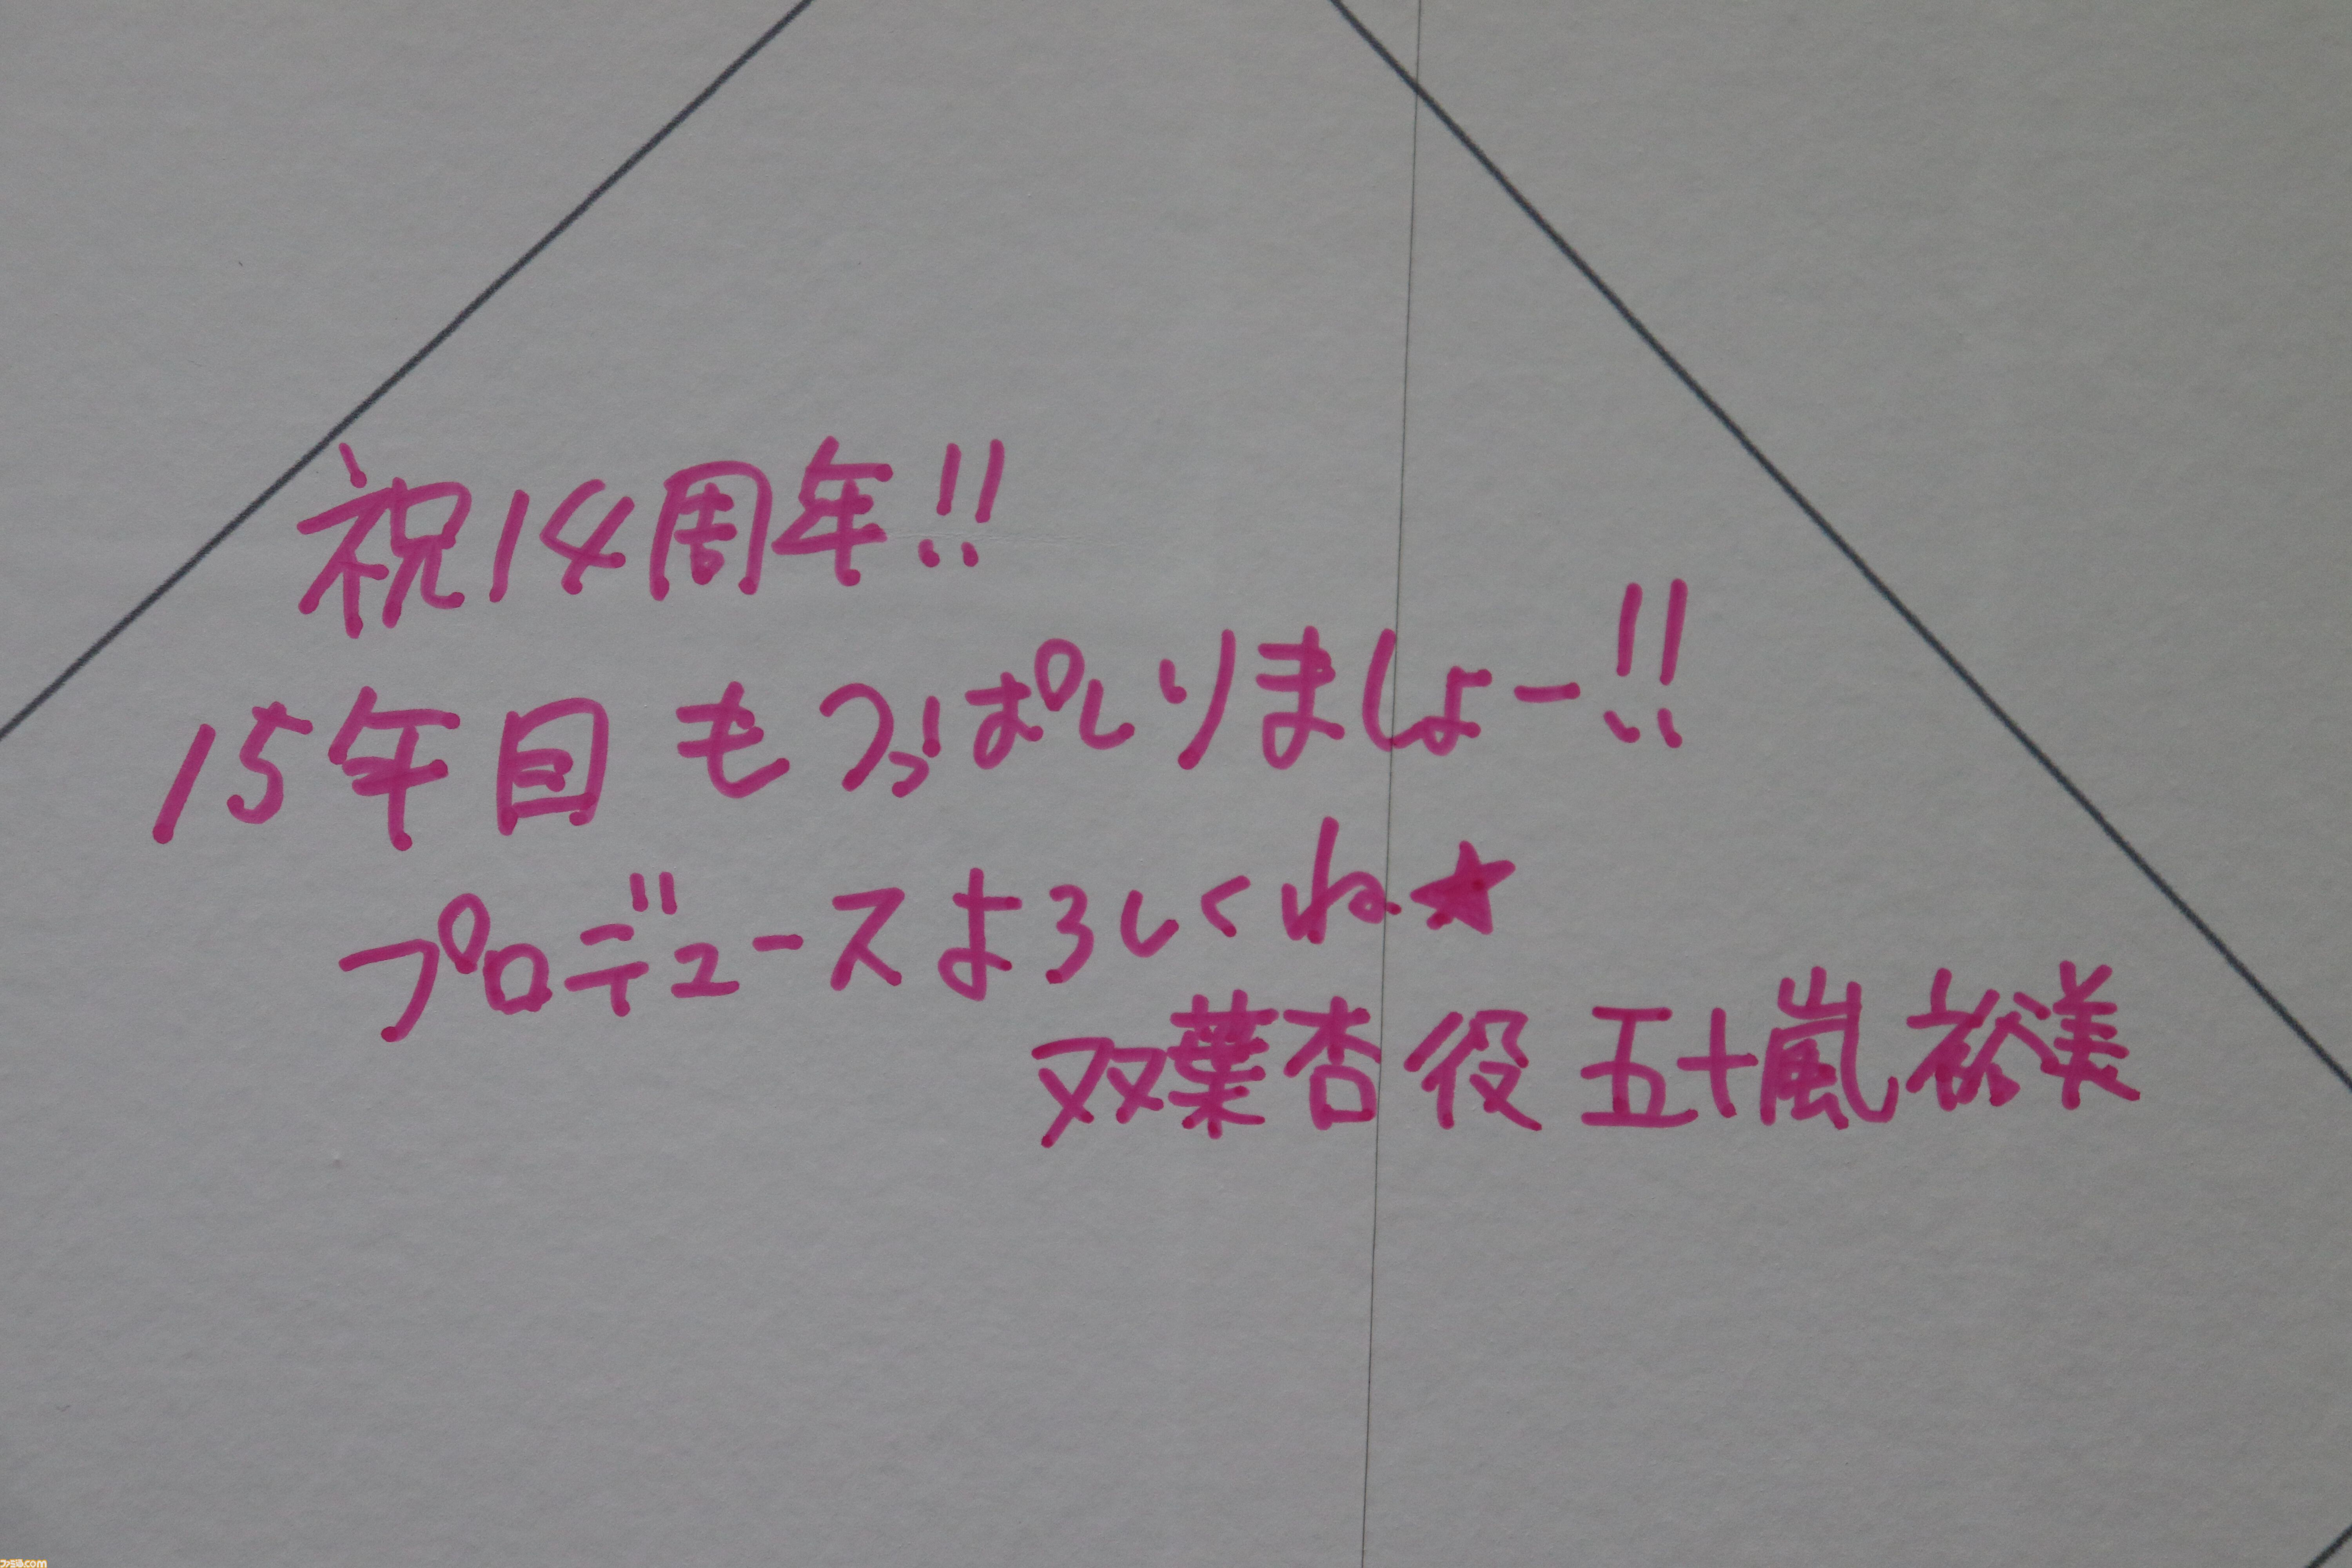 祝14周年!!
15年目もつっぱしりましょー!!
プロデュースよろしくね★
双葉杏役 五十嵐裕美
ファミ通.com